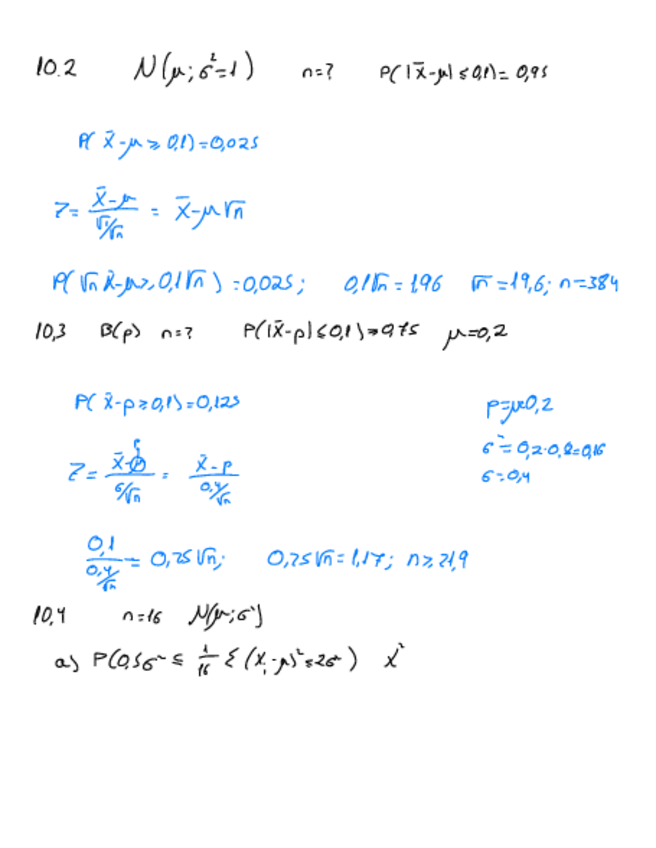 10.2 N(μ; σ²=1) n=? P(|X̄-μ| ≤ 0,1) = 0,95
P(X̄-μ ≥ 0,1) = 0,025
Z = (X̄-μ)/(√1/√n) = X̄-μ√n
P(√n X̄-μ ≥ 0,1√n) = 0,025; 0,1√n = 1,96 √n = 19,6; n=384
10,3 B(p) n=? P(|X̄-p| ≤ 0,1) = 0,75 μ=0,2
P(X̄-p ≥ 0,1) = 0,125 p=μ=0,2
σ² = 0,2·0,8=0,16
Z = (X̄-p)/(σ/√n) = (X̄-p)/(0,4/√n) σ=0,4
0,1/(0,4/√n) = 0,25√n; 0,25√n = 1,17; n ≥ 21,9
10,4 n=16 N(μ; σ²)
a) P(0,5σ² ≤ 1/16 Σ(Xᵢ-μ)² ≤ 2σ²) χ²